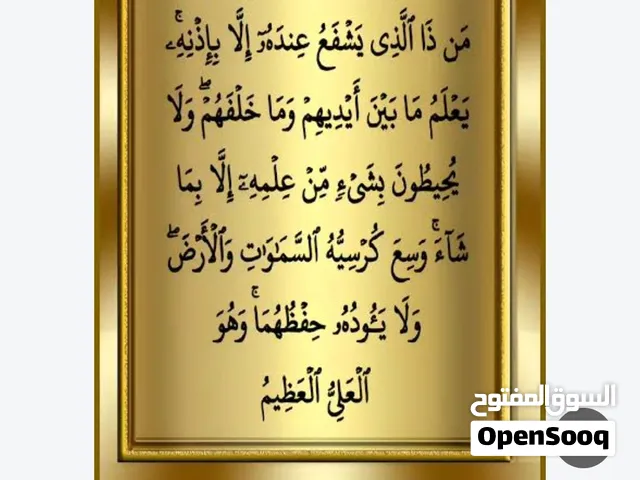 مَن ذَا ٱلَّذِى يَشْفَعُ عِندَهُۥٓ إِلَّا بِإِذْنِهِۦۚ
يَعْلَمُ مَا بَيْنَ أَيْدِيهِمْ وَمَا خَلْفَهُمْۖ وَلَا
يُحِيطُونَ بِشَىْءٍ مِّنْ عِلْمِهِۦٓ إِلَّا بِمَا
شَآءَۚ وَسِعَ كُرْسِيُّهُ ٱلسَّمَٰوَٰتِ وَٱلْأَرْضَۖ
وَلَا يَـُٔودُهُۥ حِفْظُهُمَاۚ وَهُوَ
ٱلْعَلِىُّ ٱلْعَظِيمُ
السوق المفتوح
OpenSooq